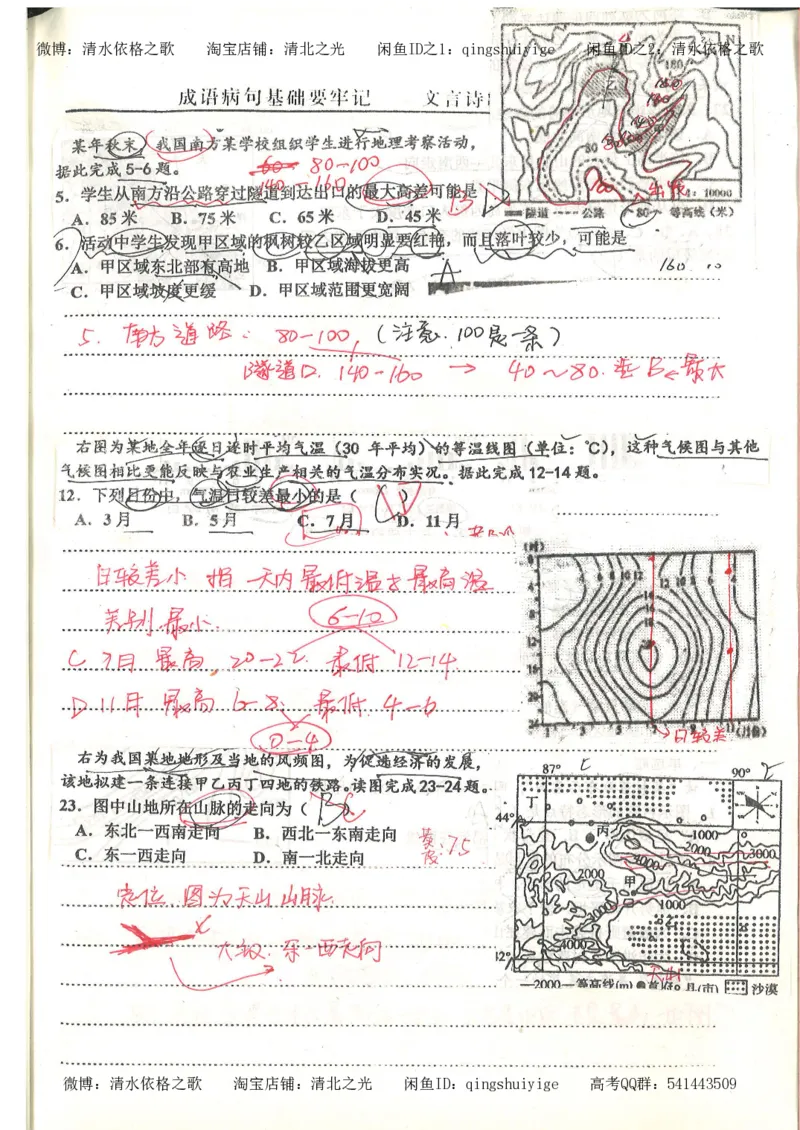 微博：清水依格之歌 淘宝店铺：清北之光 闲鱼ID之1：qingshuiyige 闲鱼ID之2：清水依格之歌
成语病句基础要牢记 文言诗
某年秋末，我国南方某学校组织学生进行地理考察活动，
据此完成5-6题。
80-100
140-160
5．学生从南方沿公路穿过隧道到达出口的最大高差可能是
A．85米 B．75米 C．65米 D．45米
6．活动中学生发现甲区域的枫树较乙区域明显要红艳，而且落叶较少，可能是
A．甲区域东北部有高地 B．甲区域海拔更高
C．甲区域坡度更缓 D．甲区域范围更宽阔
N
180
80
1：10000
隧道 公路 80 等高线（米）
160
5. 南方道路： 80-100，（注意，100是一条）
隧道口. 140-160 → 40~80. 选B←最大
右图为某地全年逐日逐时平均气温（30年平均）的等温线图（单位：℃），这种气候图与其他
气候图相比更能反映与农业生产相关的气温分布实况。据此完成12-14题。
12．下列月份中，气温日较差最小的是（ ）
A．3月 B．5月 C．7月 D．11月
日较差小 指 一天内最低温与最高温
差别最小. 6-10
C 7月 最高 20-22 最低 12-14
D 11月 最高 6-8 最低 4-6
0-4
(时)
0
4
8
12
16
20
24
1 3 5 7 9 11 (月份)
日较差
右为我国某地地形及当地的风频图，为促进经济的发展，
该地拟建一条连接甲乙丙丁四地的铁路。读图完成23-24题。
23．图中山地所在山脉的走向为（ ）
A．东北一西南走向 B．西北一东南走向
C．东一西走向 D．南一北走向
定位 图为天山山脉
大致. 东-西走向
87° 90°
丁
44°
丙
1000
2000
3000
4000
2000
甲
1000
3000
乙
4000
天山
—2000—等高线(m) 首府 县(市) 沙漠
微博：清水依格之歌 淘宝店铺：清北之光 闲鱼ID：qingshuiyige 高考QQ群：541443509